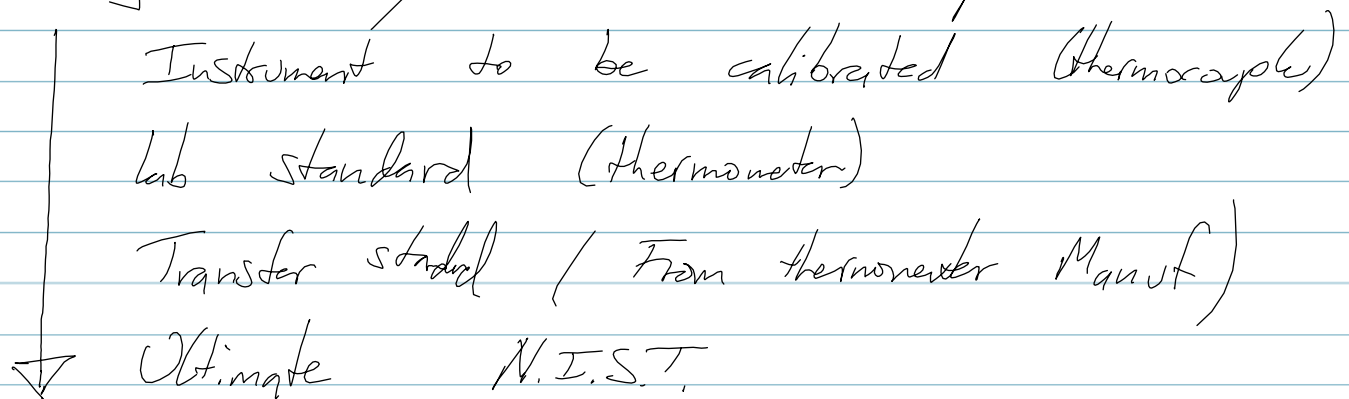 Instrument to be calibrated (thermocouple)
Lab standard (thermometer)
Transfer standard (From thermometer Manuf)
Ultimate N.I.S.T.